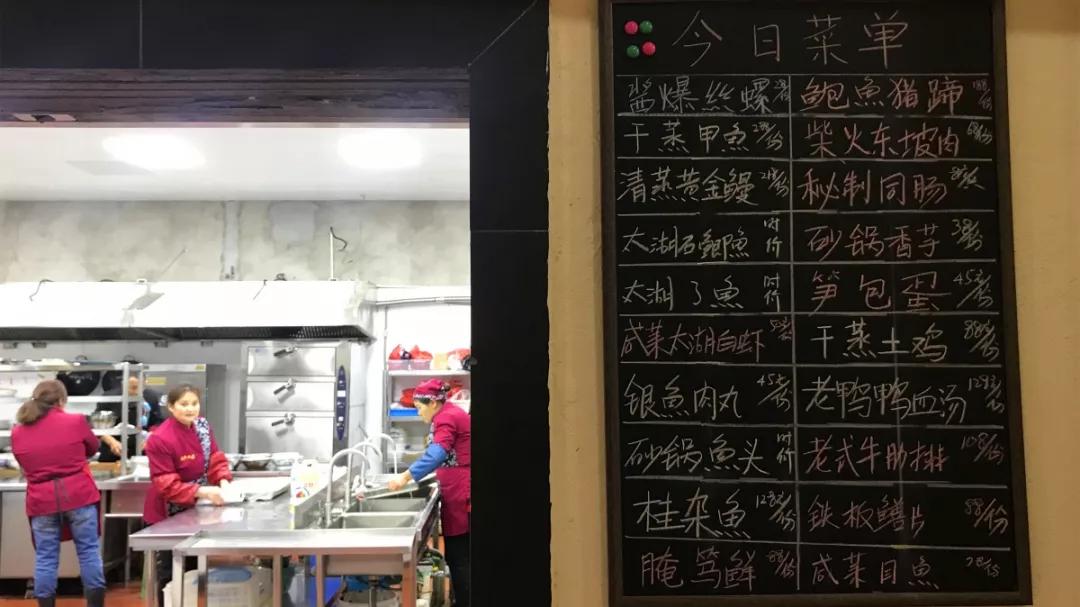 今日菜单
酱爆丝螺 鲍魚猪蹄 188/份
干蒸甲魚 柴火东坡肉 68/份
清蒸黄金鳗 秘制同肠
太湖石鲫魚 时价 砂锅香芋 38/份
太湖了魚 时价 笋包蛋 45元/份
咸菜太湖白虾 干蒸土鸡 88元/份
银魚肉丸 45元/份 老鸭鸭血汤 128元/份
砂锅魚头 时价 老式牛肋排 108/份
桂杂魚 128元/份 铁板鳝片 88/份
腌笃鲜 88/份 咸菜目魚